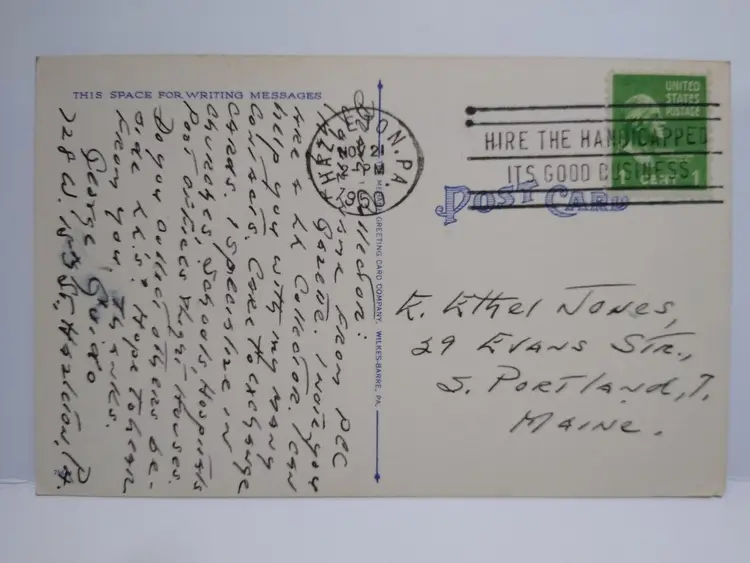 THIS SPACE FOR WRITING MESSAGES
name from PCC
Gazette. I note you
are a LL Collector. I can
help you with my many
Contacts. Care to exchange
Cards. I specialize in
Churches, Schools, Hospitals
Post Offices & Houses.
Do you collect others be-
side LL's? Hope to hear
from you. Thanks.
George Guido
728 W. St, Hazleton, Pa.
GREETING CARD COMPANY, WILKES-BARRE, PA.
PA
21
PM
HIRE THE HANDICAPPED
ITS GOOD BUSINESS
UNITED
STATES
POSTAGE
1 CENT 1
POST CARD
E. Ethel Jones,
29 Evans Str.,
S. Portland, 7.
Maine.